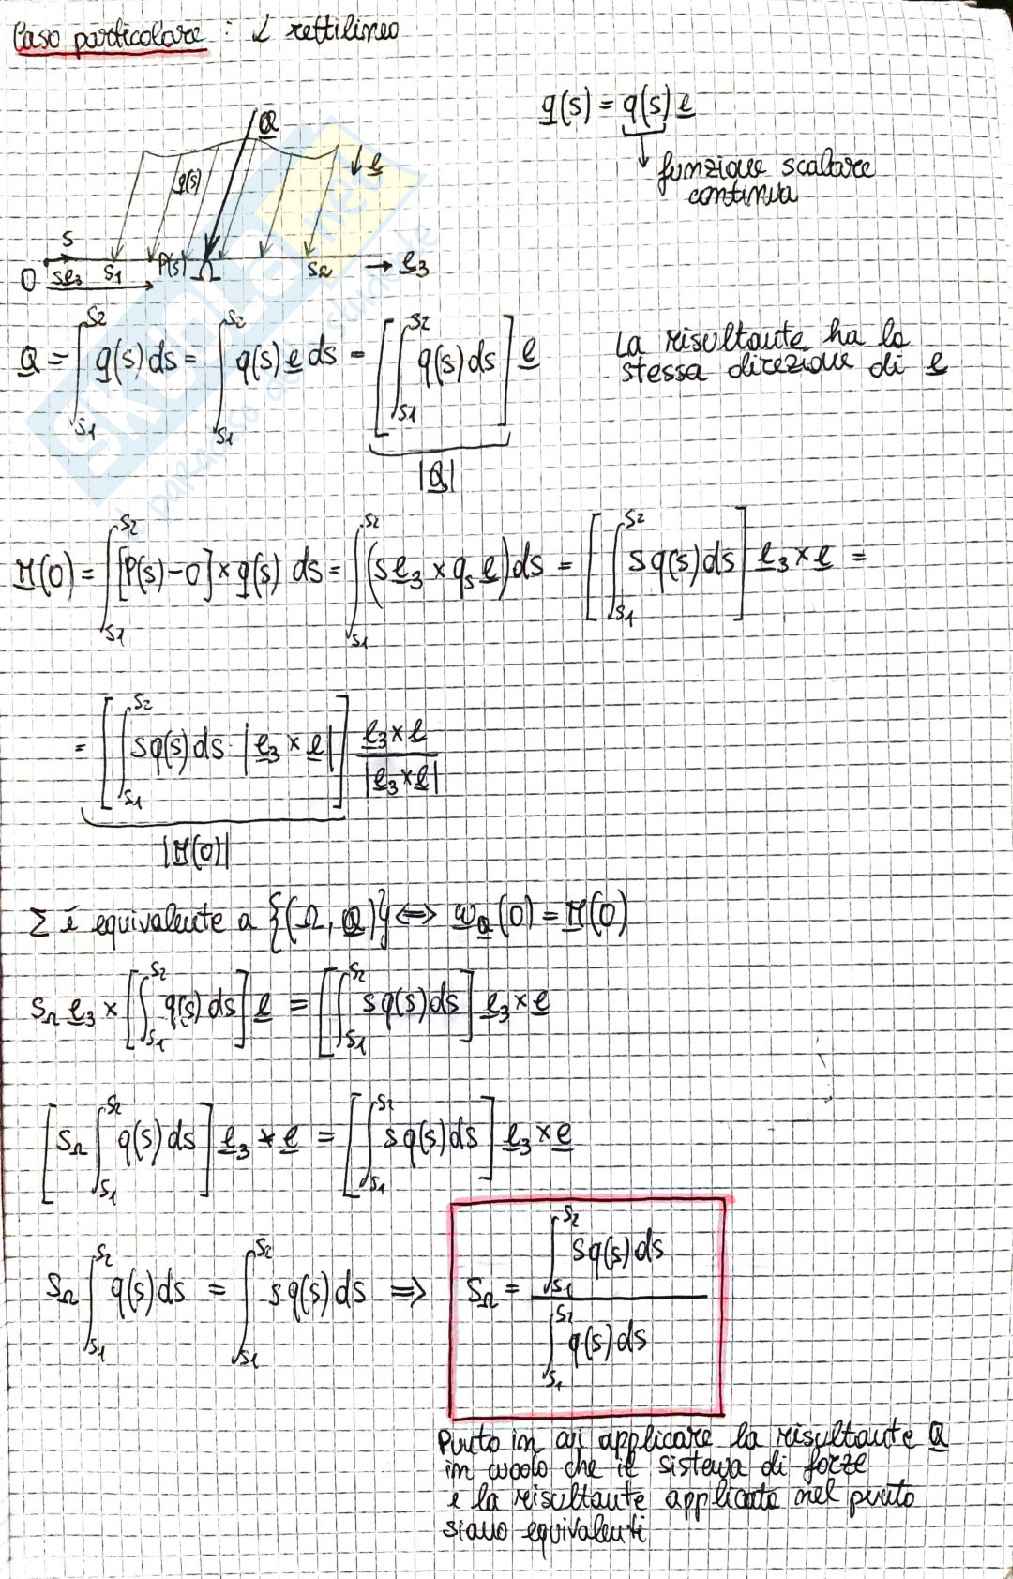 Caso particolare : L rettilineo
q(s) = q(s) e
funzione scalare
continua
Q
q(s)
e
s
O se₃ s₁ P(s) Ω s₂ e₃
Q = ∫_{s₁}^{s₂} q(s) ds = ∫_{s₁}^{s₂} q(s) e ds = [∫_{s₁}^{s₂} q(s) ds] e
|Q|
La risultante ha la
stessa direzione di e
M(O) = ∫_{s₁}^{s₂} [P(s)-O] × q(s) ds = ∫_{s₁}^{s₂} (s e₃ × qₛ e) ds = [∫_{s₁}^{s₂} s q(s) ds] e₃ × e =
= [∫_{s₁}^{s₂} s q(s) ds · |e₃ × e|] e₃ × e / |e₃ × e|
|M(O)|
Σ è equivalente a {(Ω, Q)} ⟺ ω_Q(O) = M(O)
s_Ω e₃ × [∫_{s₁}^{s₂} q(s) ds] e = [∫_{s₁}^{s₂} s q(s) ds] e₃ × e
[s_Ω ∫_{s₁}^{s₂} q(s) ds] e₃ × e = [∫_{s₁}^{s₂} s q(s) ds] e₃ × e
s_Ω ∫_{s₁}^{s₂} q(s) ds = ∫_{s₁}^{s₂} s q(s) ds ⟹ s_Ω = ∫_{s₁}^{s₂} s q(s) ds / ∫_{s₁}^{s₂} q(s) ds
Punto in cui applicare la risultante Q
in modo che il sistema di forze
e la risultante applicata nel punto
siano equivalenti